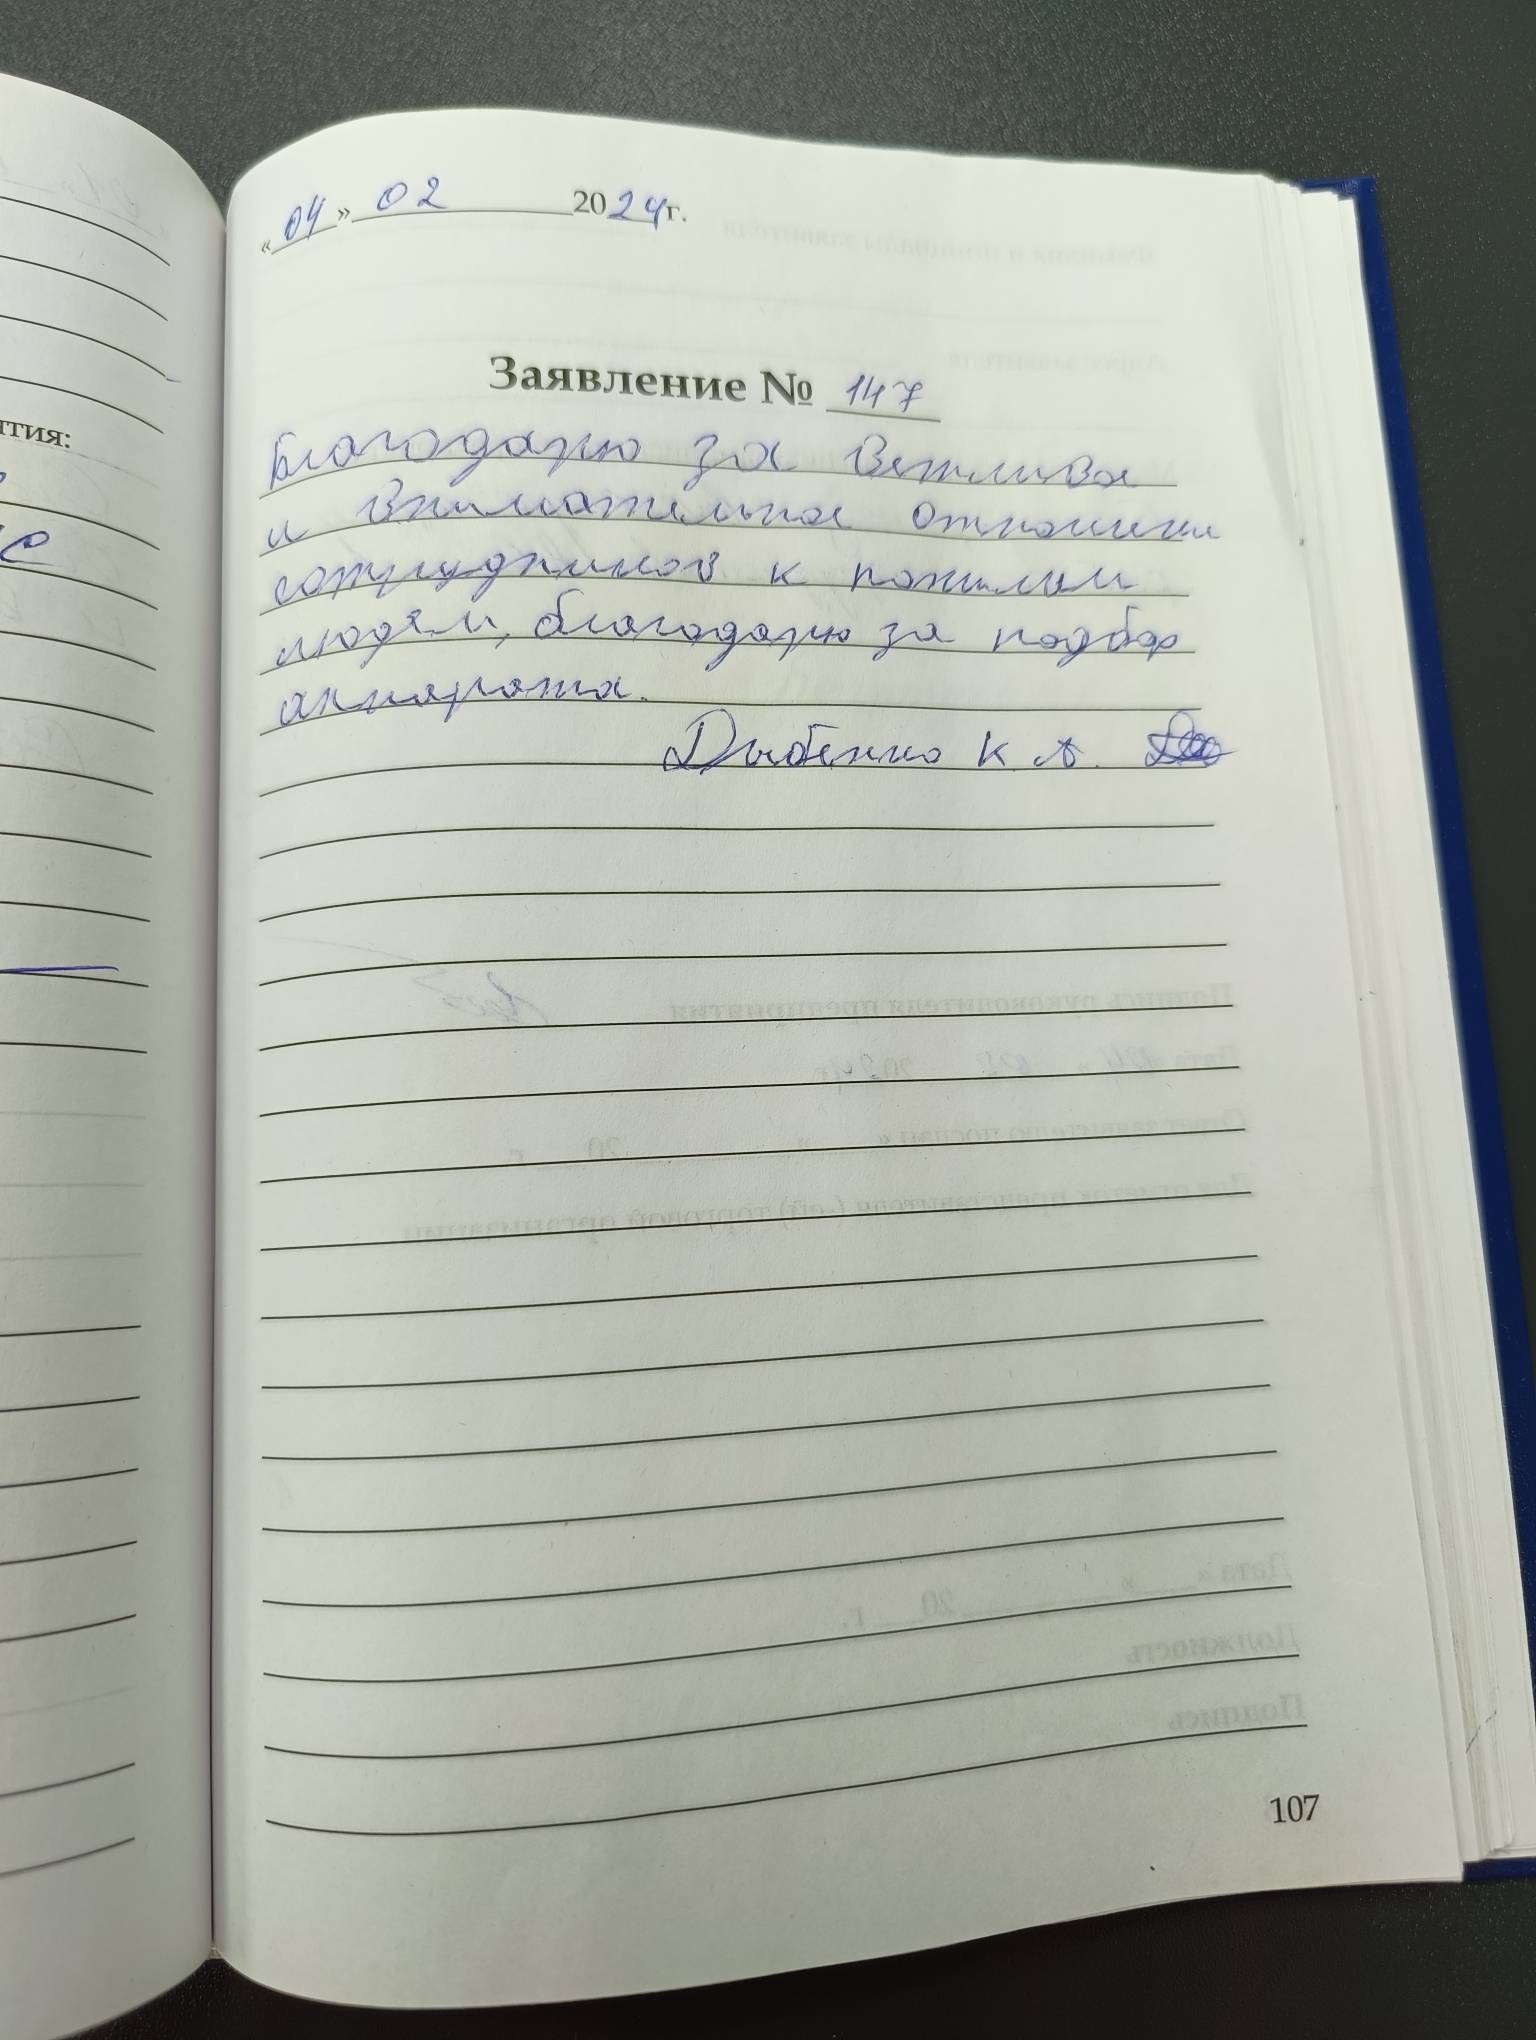 «04» 02 2024г.
Заявление № 147
Благодарю за вежлива
и внимательное отношени
сотрудников к пожилым
людям, благодарю за подбор
аппарата.
Дыбенко К А.
тия:
107